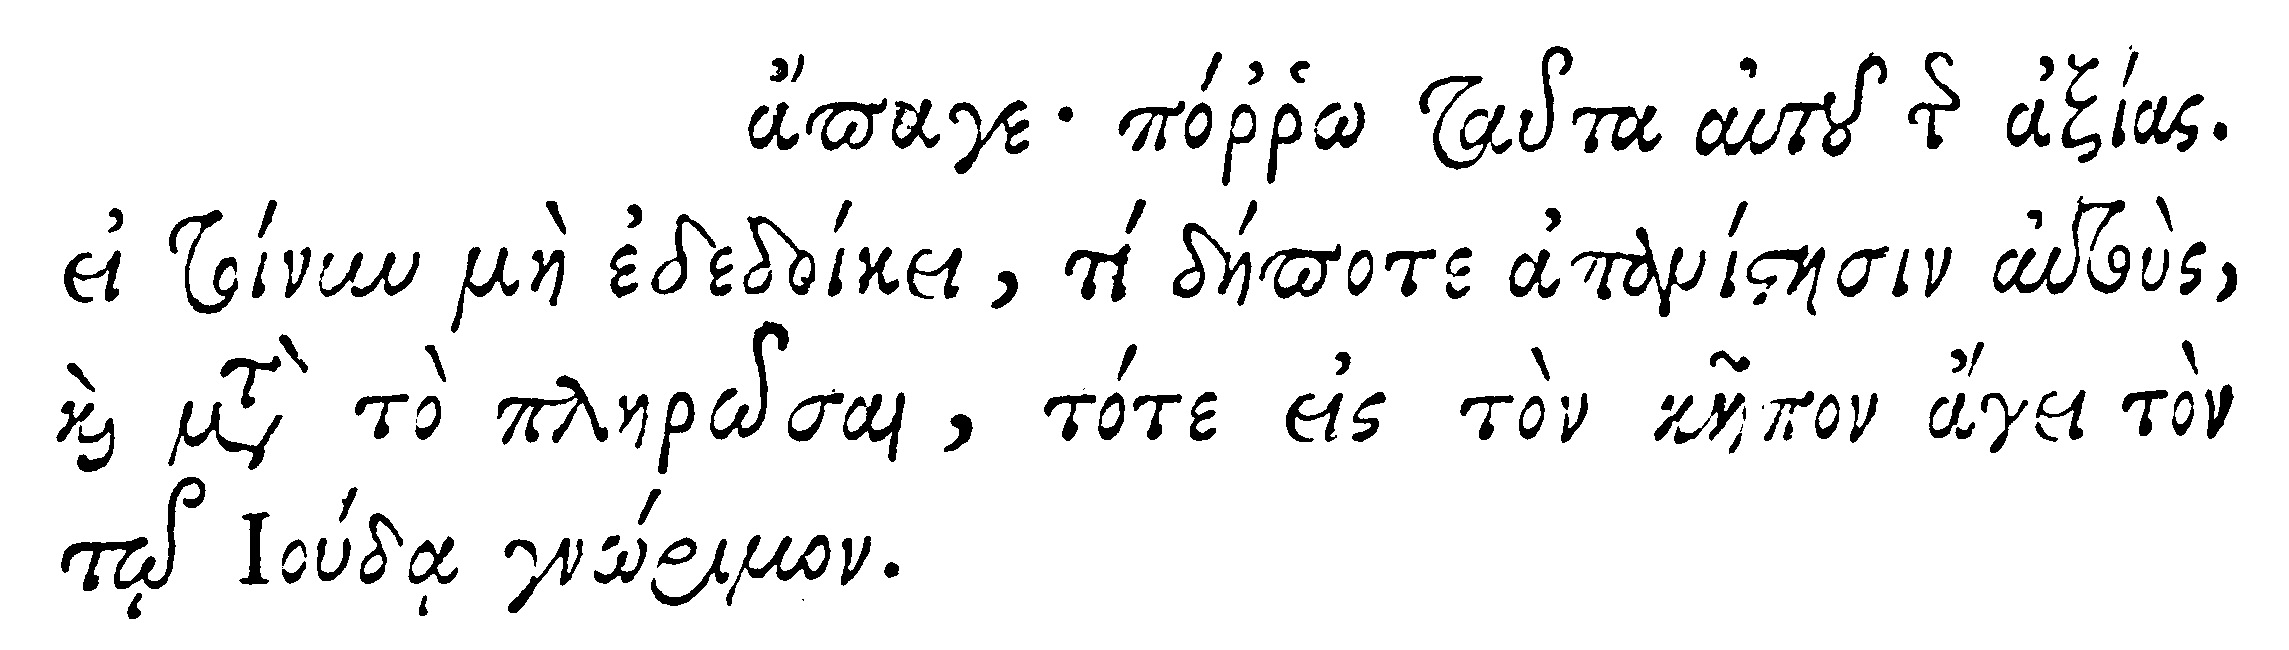 ἄπαγε· πόῤῥω ταῦτα αὐτοῦ τῆς ἀξίας.
εἰ τοίνυν μὴ ἐδεδοίκει, τί δήποτε ἀπανίστησιν αὐτοὺς,
καὶ μετὰ τὸ πληρῶσαι, τότε εἰς τὸν κῆπον ἄγει τὸν
τῷ Ιούδᾳ γνώριμον.